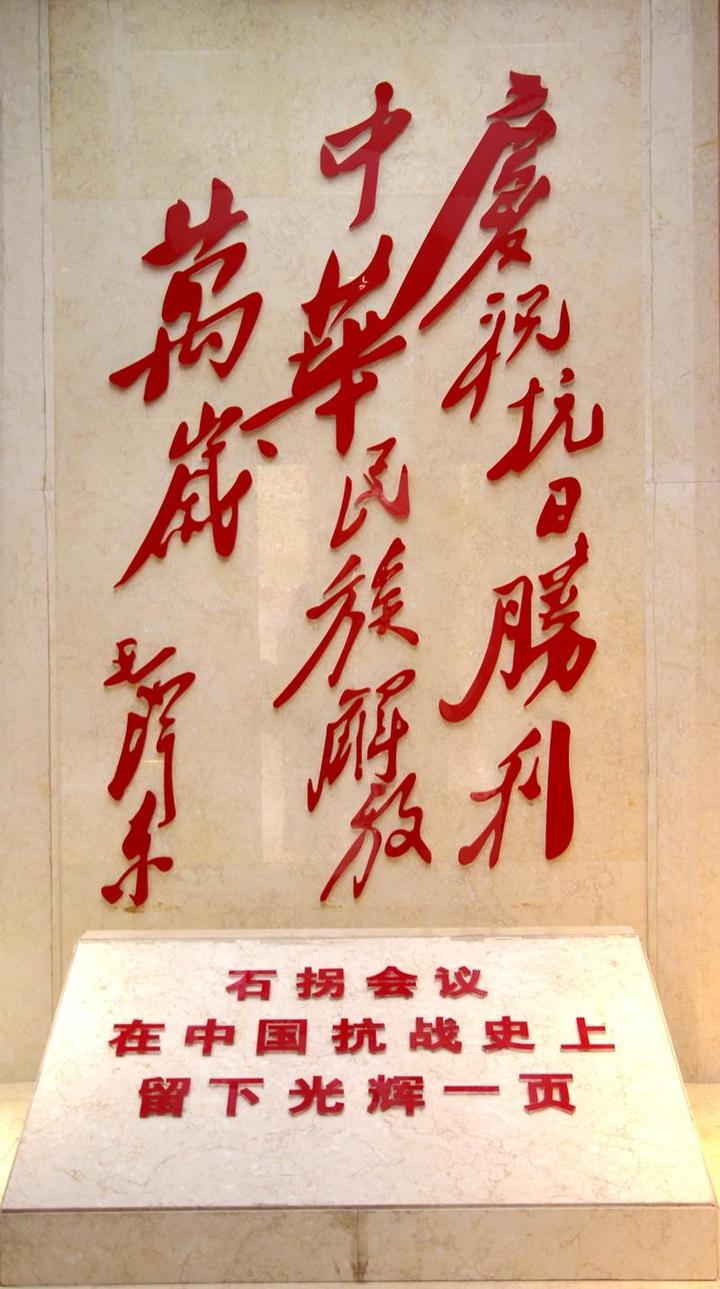 慶祝抗日勝利
中華民族解放
萬歲
毛澤东
石拐会议
在中国抗战史上
留下光辉一页